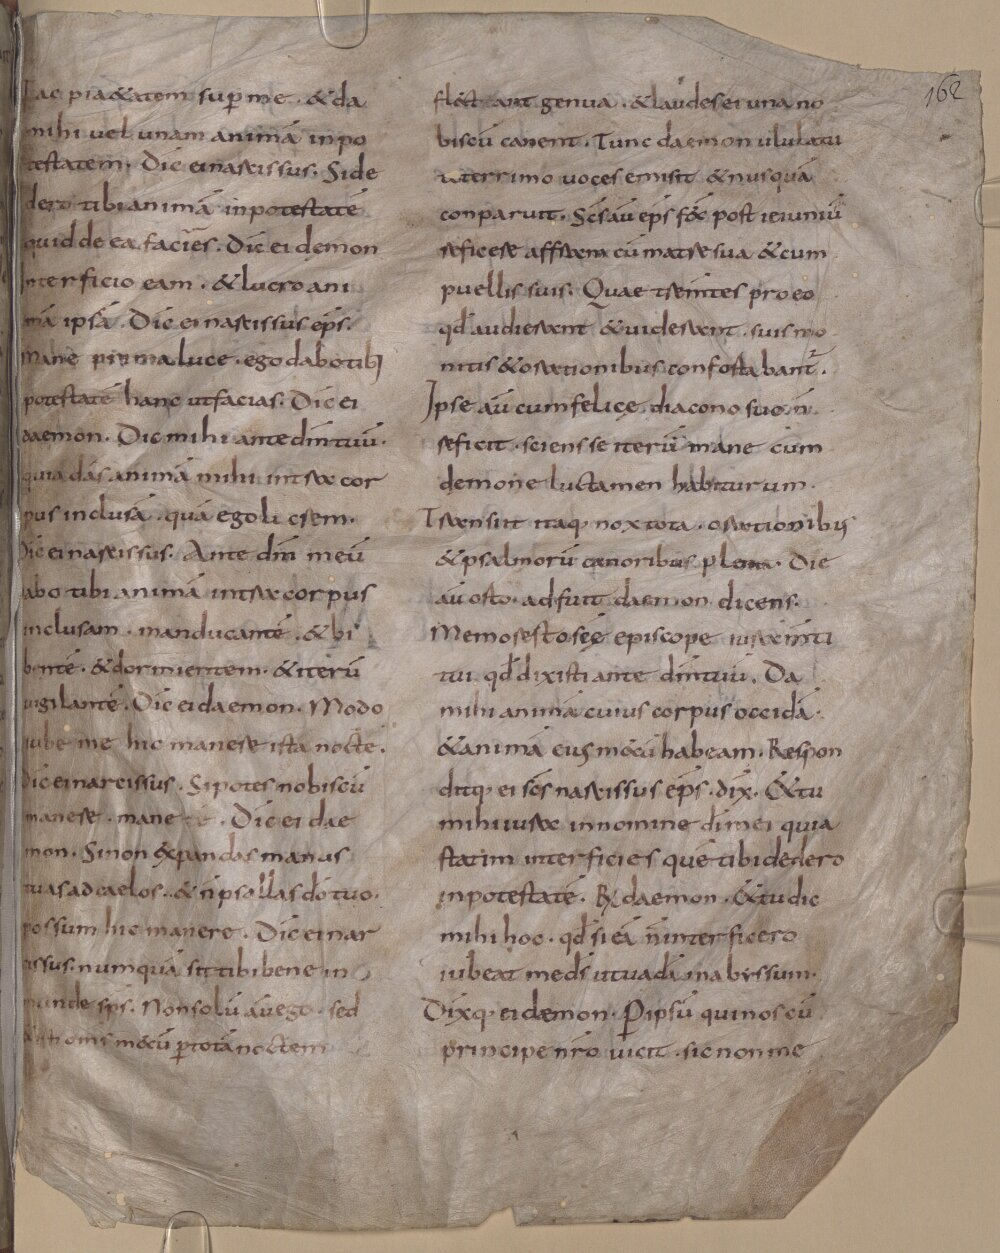 162
Fac pia&atem sup me . & da
mihi uel unam animā inpo
testatem. Dic ei narcissus. Side
dero tibi animā inpotestatē
quid de ea facies. Dic ei demon
interficio eam . & lucro ani
mā ipsā . Dic ei narcissus eps.
Mane prima luce . ego dabo tibi
potestatē hanc ut facias. Dic ei
daemon. Dic mihi ante dm̄ tuū.
quia das animā mihi intra cor
pus inclusā . quā ego
Dic ei narcissus. Ante dm̄ meū
dabo tibi animā intra corpus
inclusam . manducantē . & bi
bentē . & dormientem . & iterū
uigilantē . Dic ei daemon. Modo
iube me hic manere ista nocte .
Dic ei narcissus . Si potes nobiscū
manere . mane . Dic ei dae
mon. Sinon expandas manus
tuas ad caelos . & n̄ psallas dō tuo .
possum hic manere . Dic ei nar
cissus. numquā sit tibi bene in
munde sps. Non solū aū ego . sed
omis mecū p totā noctem
flectant genua . & laudes ei una no
biscū canent . Tunc daemon ululatu
teterrimo uoces emisit & nusquā
conparuit . Scs aū eps fec post ieiuniū
reficere affram cū matre sua & cum
puellis suis . Quae trementes pro eo
qd audierant & uiderant . suis mo
nitis & orationibus confortabantr̄ .
Ipse aū cum felice diacono suo n̄
reficit . sciens se iterū mane cum
demone luctamen habiturum .
Transiit itaq; nox tota . orationibus
& psalmorū canoribus plena . Die
aū orto . adfuit daemon dicens .
Memor esto sce episcope iuramti
tui qd dixisti ante dm̄ tuū . Da
mihi animā cuius corpus occidā .
& animā eius mecū habeam . Respon
ditq; ei scs narcissus eps . dix . & tu
mihi iura in nomine dī mei quia
statim interficies quē tibi dedero
inpotestatē . R daemon . & tu dic
mihi hoc . qd si eā n̄ interficero
iubeat me ds̄ tuus uadā in abyssum .
Dixq; ei demon . P ipsū qui nos cū
principe nr̄o uicit . sic non me